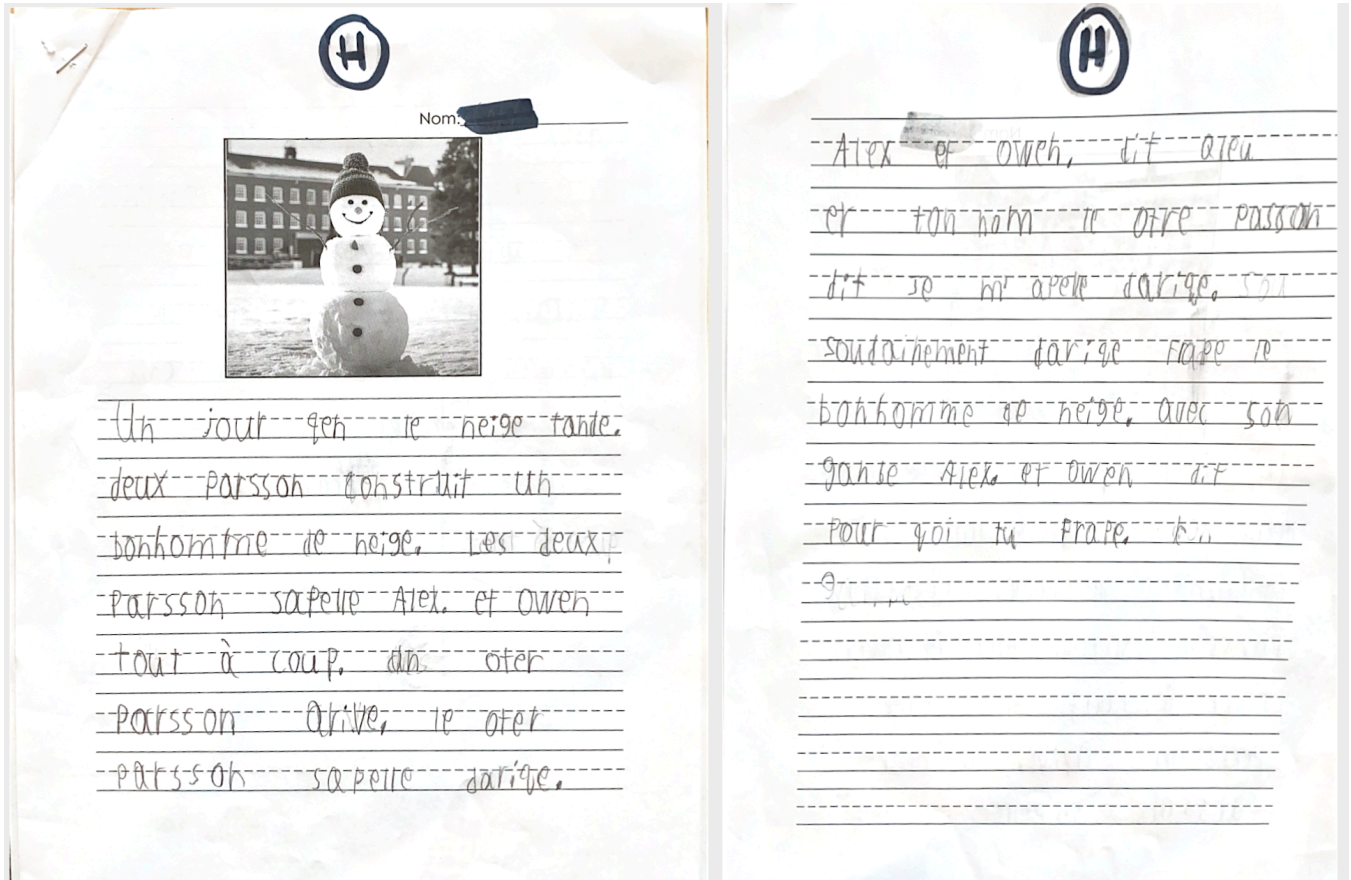 H
Nom:
Un jour qen le neige tande.
deux parsson construit un
bonhomme de neige. Les deux
parsson sapelle Alex. et Owen
tout à coup. un oter
parsson arive, le oter
parsson sapelle darige.
H
Alex et Owen, dit
et ton nom le otre passon
dit se m'apelle darige.
soudainement darige frape le
bonhomme de neige. avec son
ganse Alex. et Owen dit
pour qoi tu frape.